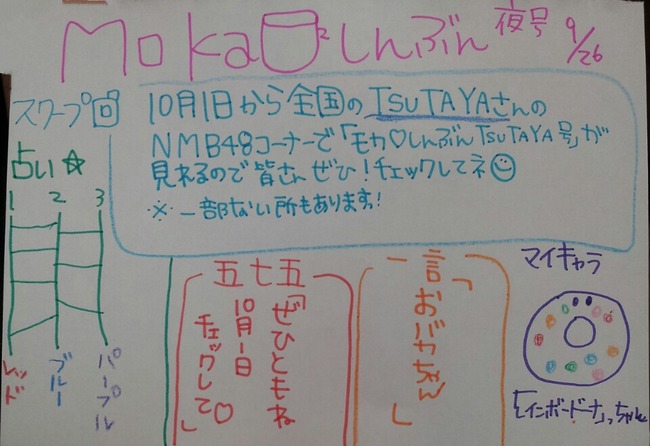 Moka しんぶん 夜号 9/26
スクープ回
10月1日から全国のTSUTAYAさんの
NMB48コーナーで「モカ♡しんぶんTSUTAYA号」が
見れるので皆さんぜひ!チェックしてネ☺
※一部ない所もあります!
占い☆
1 2 3
レッド
ブルー
パープル
五七五
「ぜひともね
10月1日
チェックして♡」
一言
「おバカちゃん」
マイキャラ
「レインボードーナっちゃん